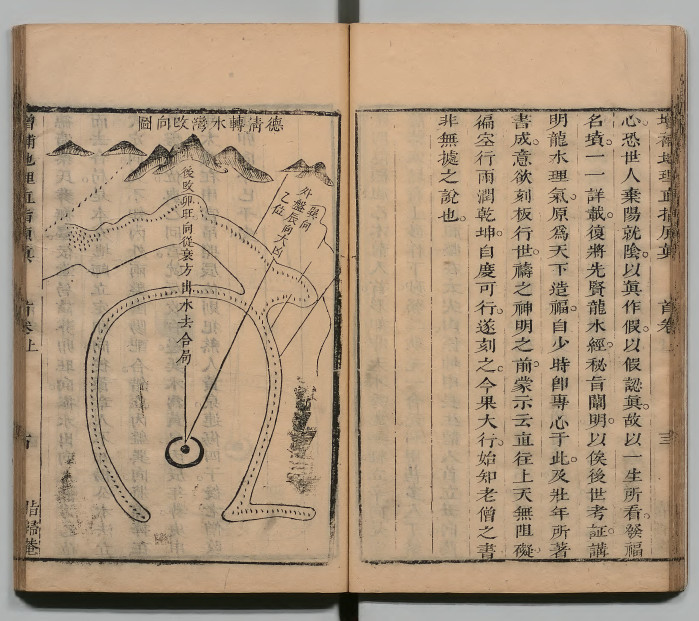 心恐世人棄陽就陰。以眞作假。以假認眞。故以一生所看發福
名墳。一一詳載。復將先賢龍水經。秘旨闡明。以俟後世考証。講
明龍水理氣。原爲天下造福。自少時卽專心于此。及壯年所著
書成。意欲刻板行世。禱之神明之前。蒙示云。直往上天無阻礙
徧空行雨潤乾坤。自度可行。遂刻之。今果大行。始知老僧之書
非無據之說也。
首卷上
三
德清轉水灣改向圖
後改卯旺向從衰方出水去合局
巽向
外盤辰向大凶
乙位
增補地理直指原眞
首卷上